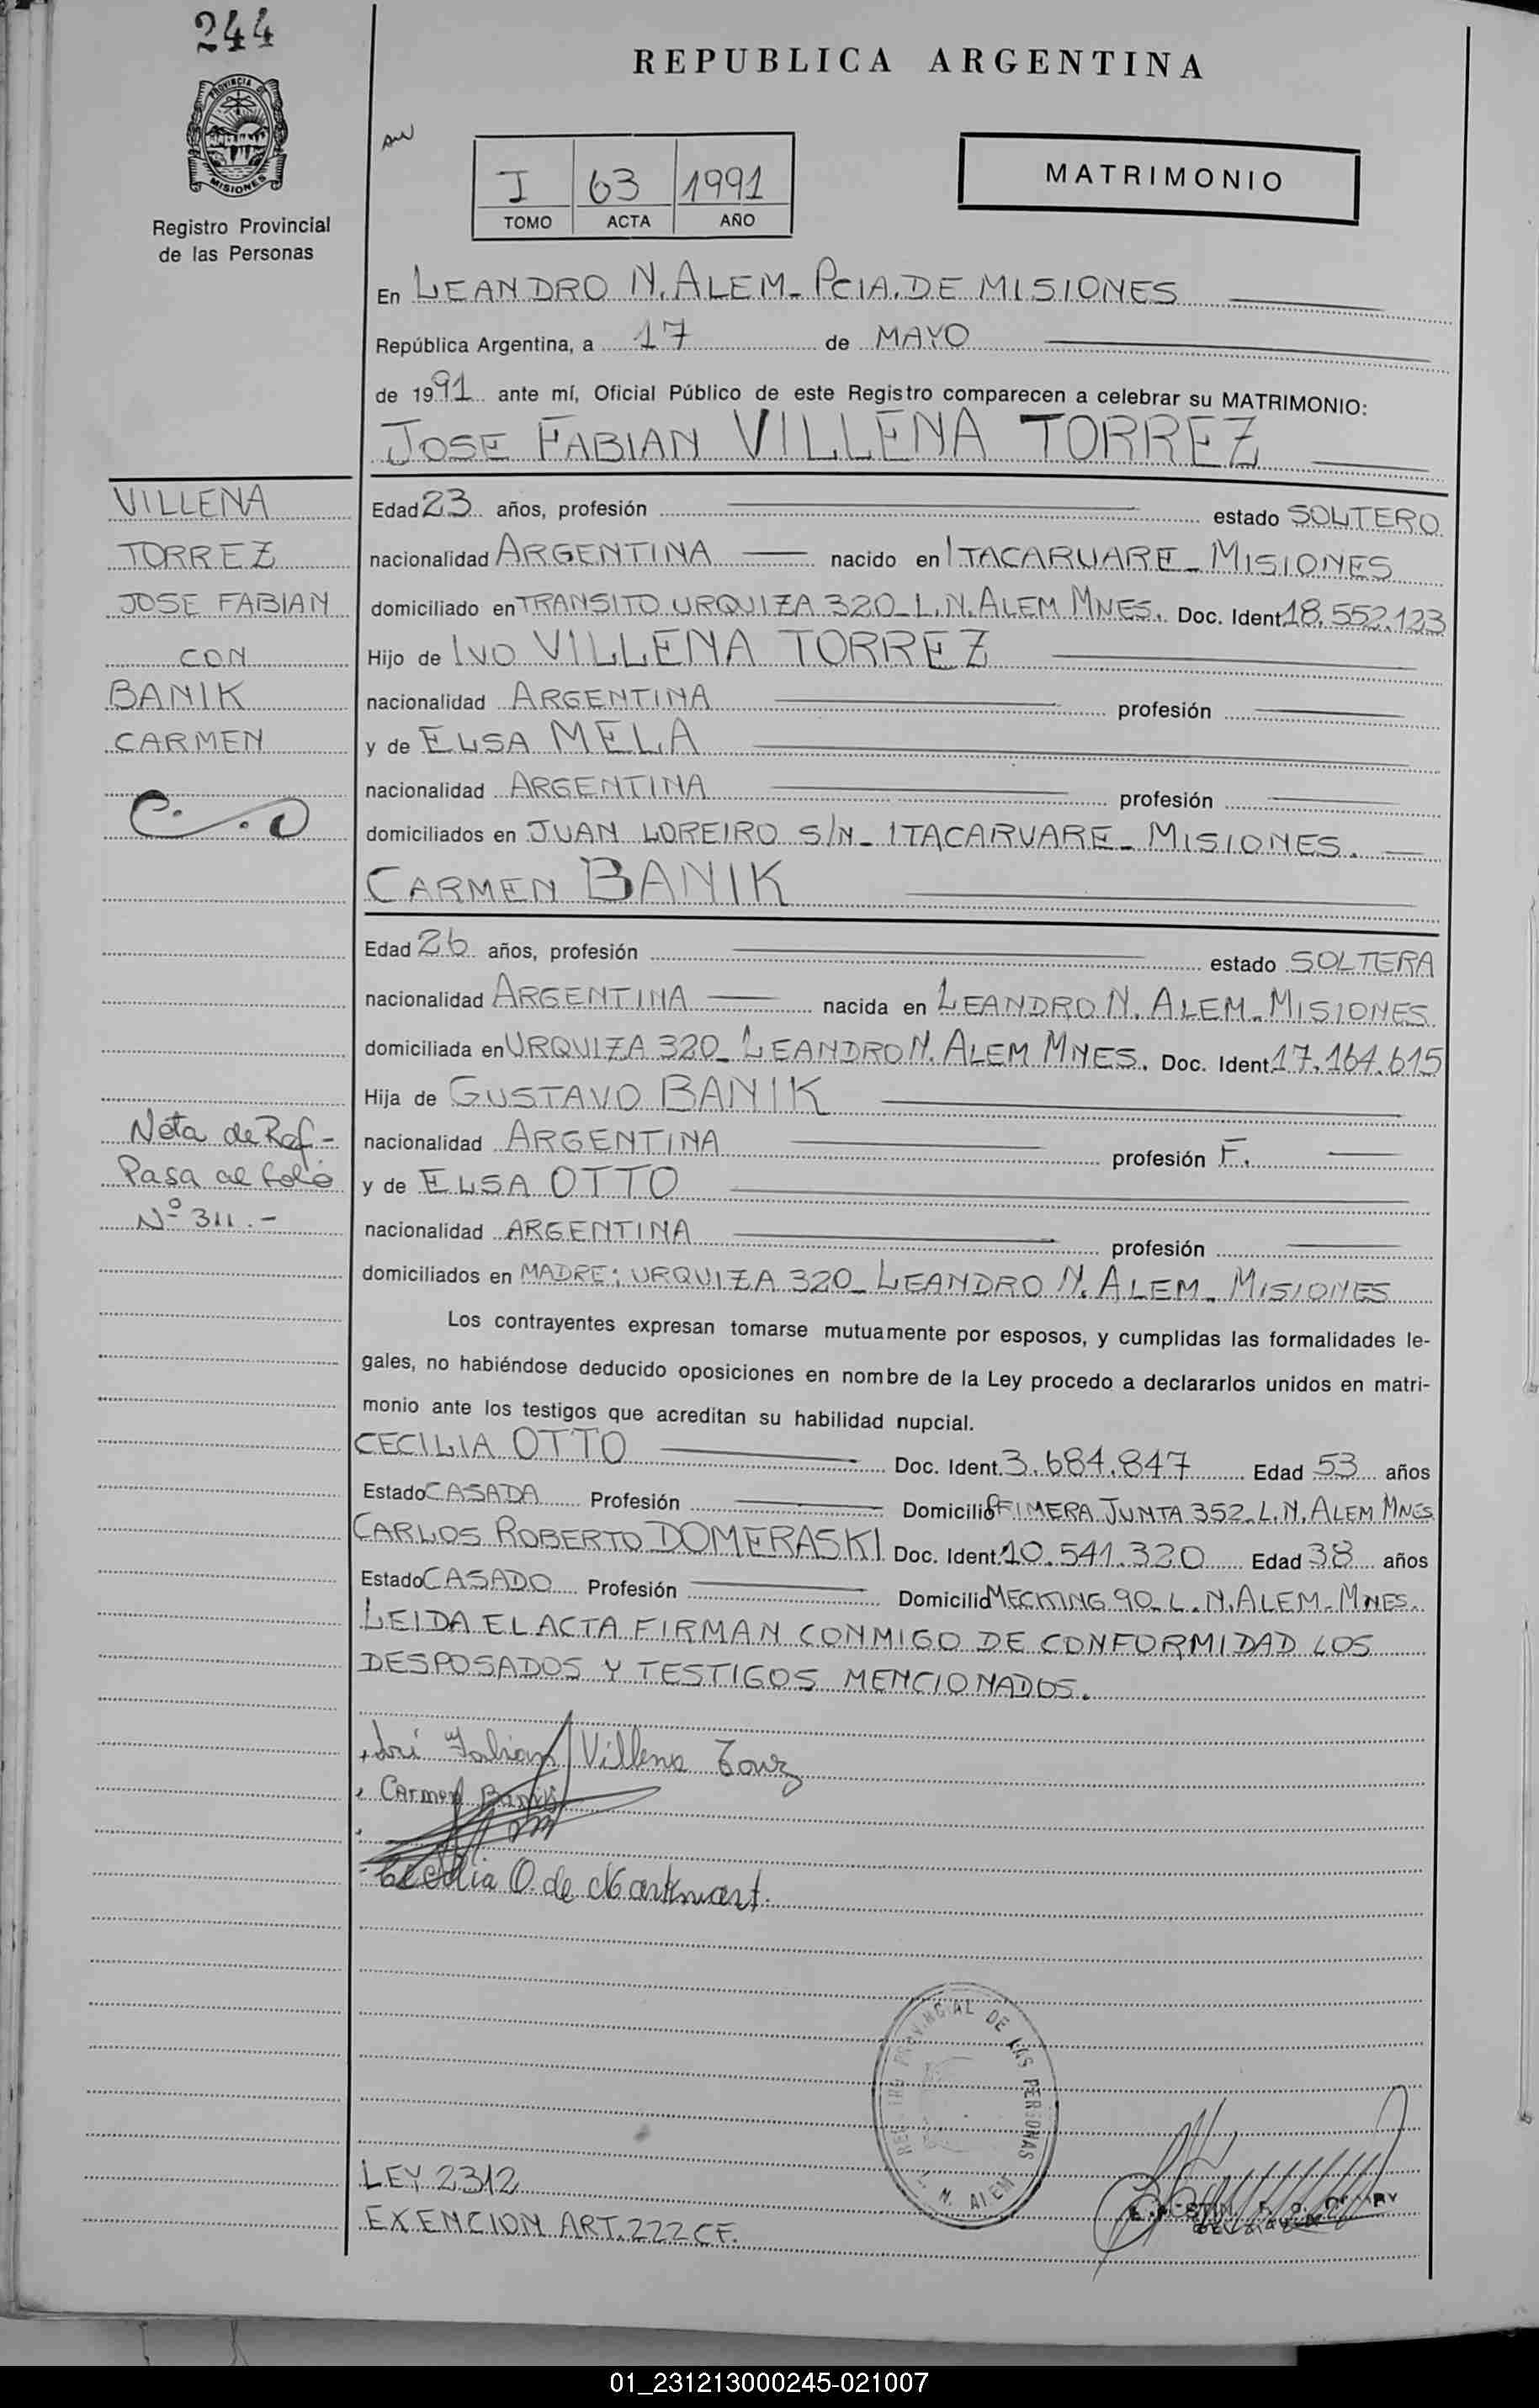 244
PROVINCIA DE
MISIONES
Registro Provincial
de las Personas
REPUBLICA ARGENTINA
I 63 1991
TOMO ACTA AÑO
MATRIMONIO
En LEANDRO N. ALEM - PCIA. DE MISIONES
República Argentina, a 17 de MAYO
de 1991 ante mí, Oficial Público de este Registro comparecen a celebrar su MATRIMONIO:
JOSE FABIAN VILLENA TORREZ
VILLENA
TORREZ
JOSE FABIAN
CON
BANIK
CARMEN
Edad 23 años, profesión estado SOLTERO
nacionalidad ARGENTINA nacido en ITACARUARE - MISIONES
domiciliado en TRANSITO URQUIZA 320 - L.N. ALEM MNES. Doc. Ident. 18.552.123
Hijo de IVO VILLENA TORREZ
nacionalidad ARGENTINA profesión
y de ELISA MELA
nacionalidad ARGENTINA profesión
domiciliados en JUAN LOREIRO S/N - ITACARUARE - MISIONES.
CARMEN BANIK
Edad 26 años, profesión estado SOLTERA
nacionalidad ARGENTINA nacida en LEANDRO N. ALEM - MISIONES
domiciliada en URQUIZA 320 - LEANDRO N. ALEM MNES. Doc. Ident. 17.164.615
Hija de GUSTAVO BANIK
nacionalidad ARGENTINA profesión F.
y de ELSA OTTO
nacionalidad ARGENTINA profesión
domiciliados en MADRE: URQUIZA 320 - LEANDRO N. ALEM - MISIONES
Nota de Ref -
Pasa al folio
Nº 311.-
Los contrayentes expresan tomarse mutuamente por esposos, y cumplidas las formalidades le-
gales, no habiéndose deducido oposiciones en nombre de la Ley procedo a declararlos unidos en matri-
monio ante los testigos que acreditan su habilidad nupcial.
CECILIA OTTO Doc. Ident. 3.684.847 Edad 53 años
Estado CASADA Profesión Domicilio PRIMERA JUNTA 352 - L.N. ALEM MNES
CARLOS ROBERTO DOMERASKI Doc. Ident. 10.541.320 Edad 38 años
Estado CASADO Profesión Domicilio MECKING 90 - L.N. ALEM - MNES.
LEIDA EL ACTA FIRMAN CONMIGO DE CONFORMIDAD LOS
DESPOSADOS Y TESTIGOS MENCIONADOS.
José Fabian Villena Torrez
Carmen Banik
Cecilia O. de Markmart.
REGISTRO PROVINCIAL DE LAS PERSONAS
L. N. ALEM
LEY 2312
EXENCION ART. 222 CF.
01_231213000245-021007